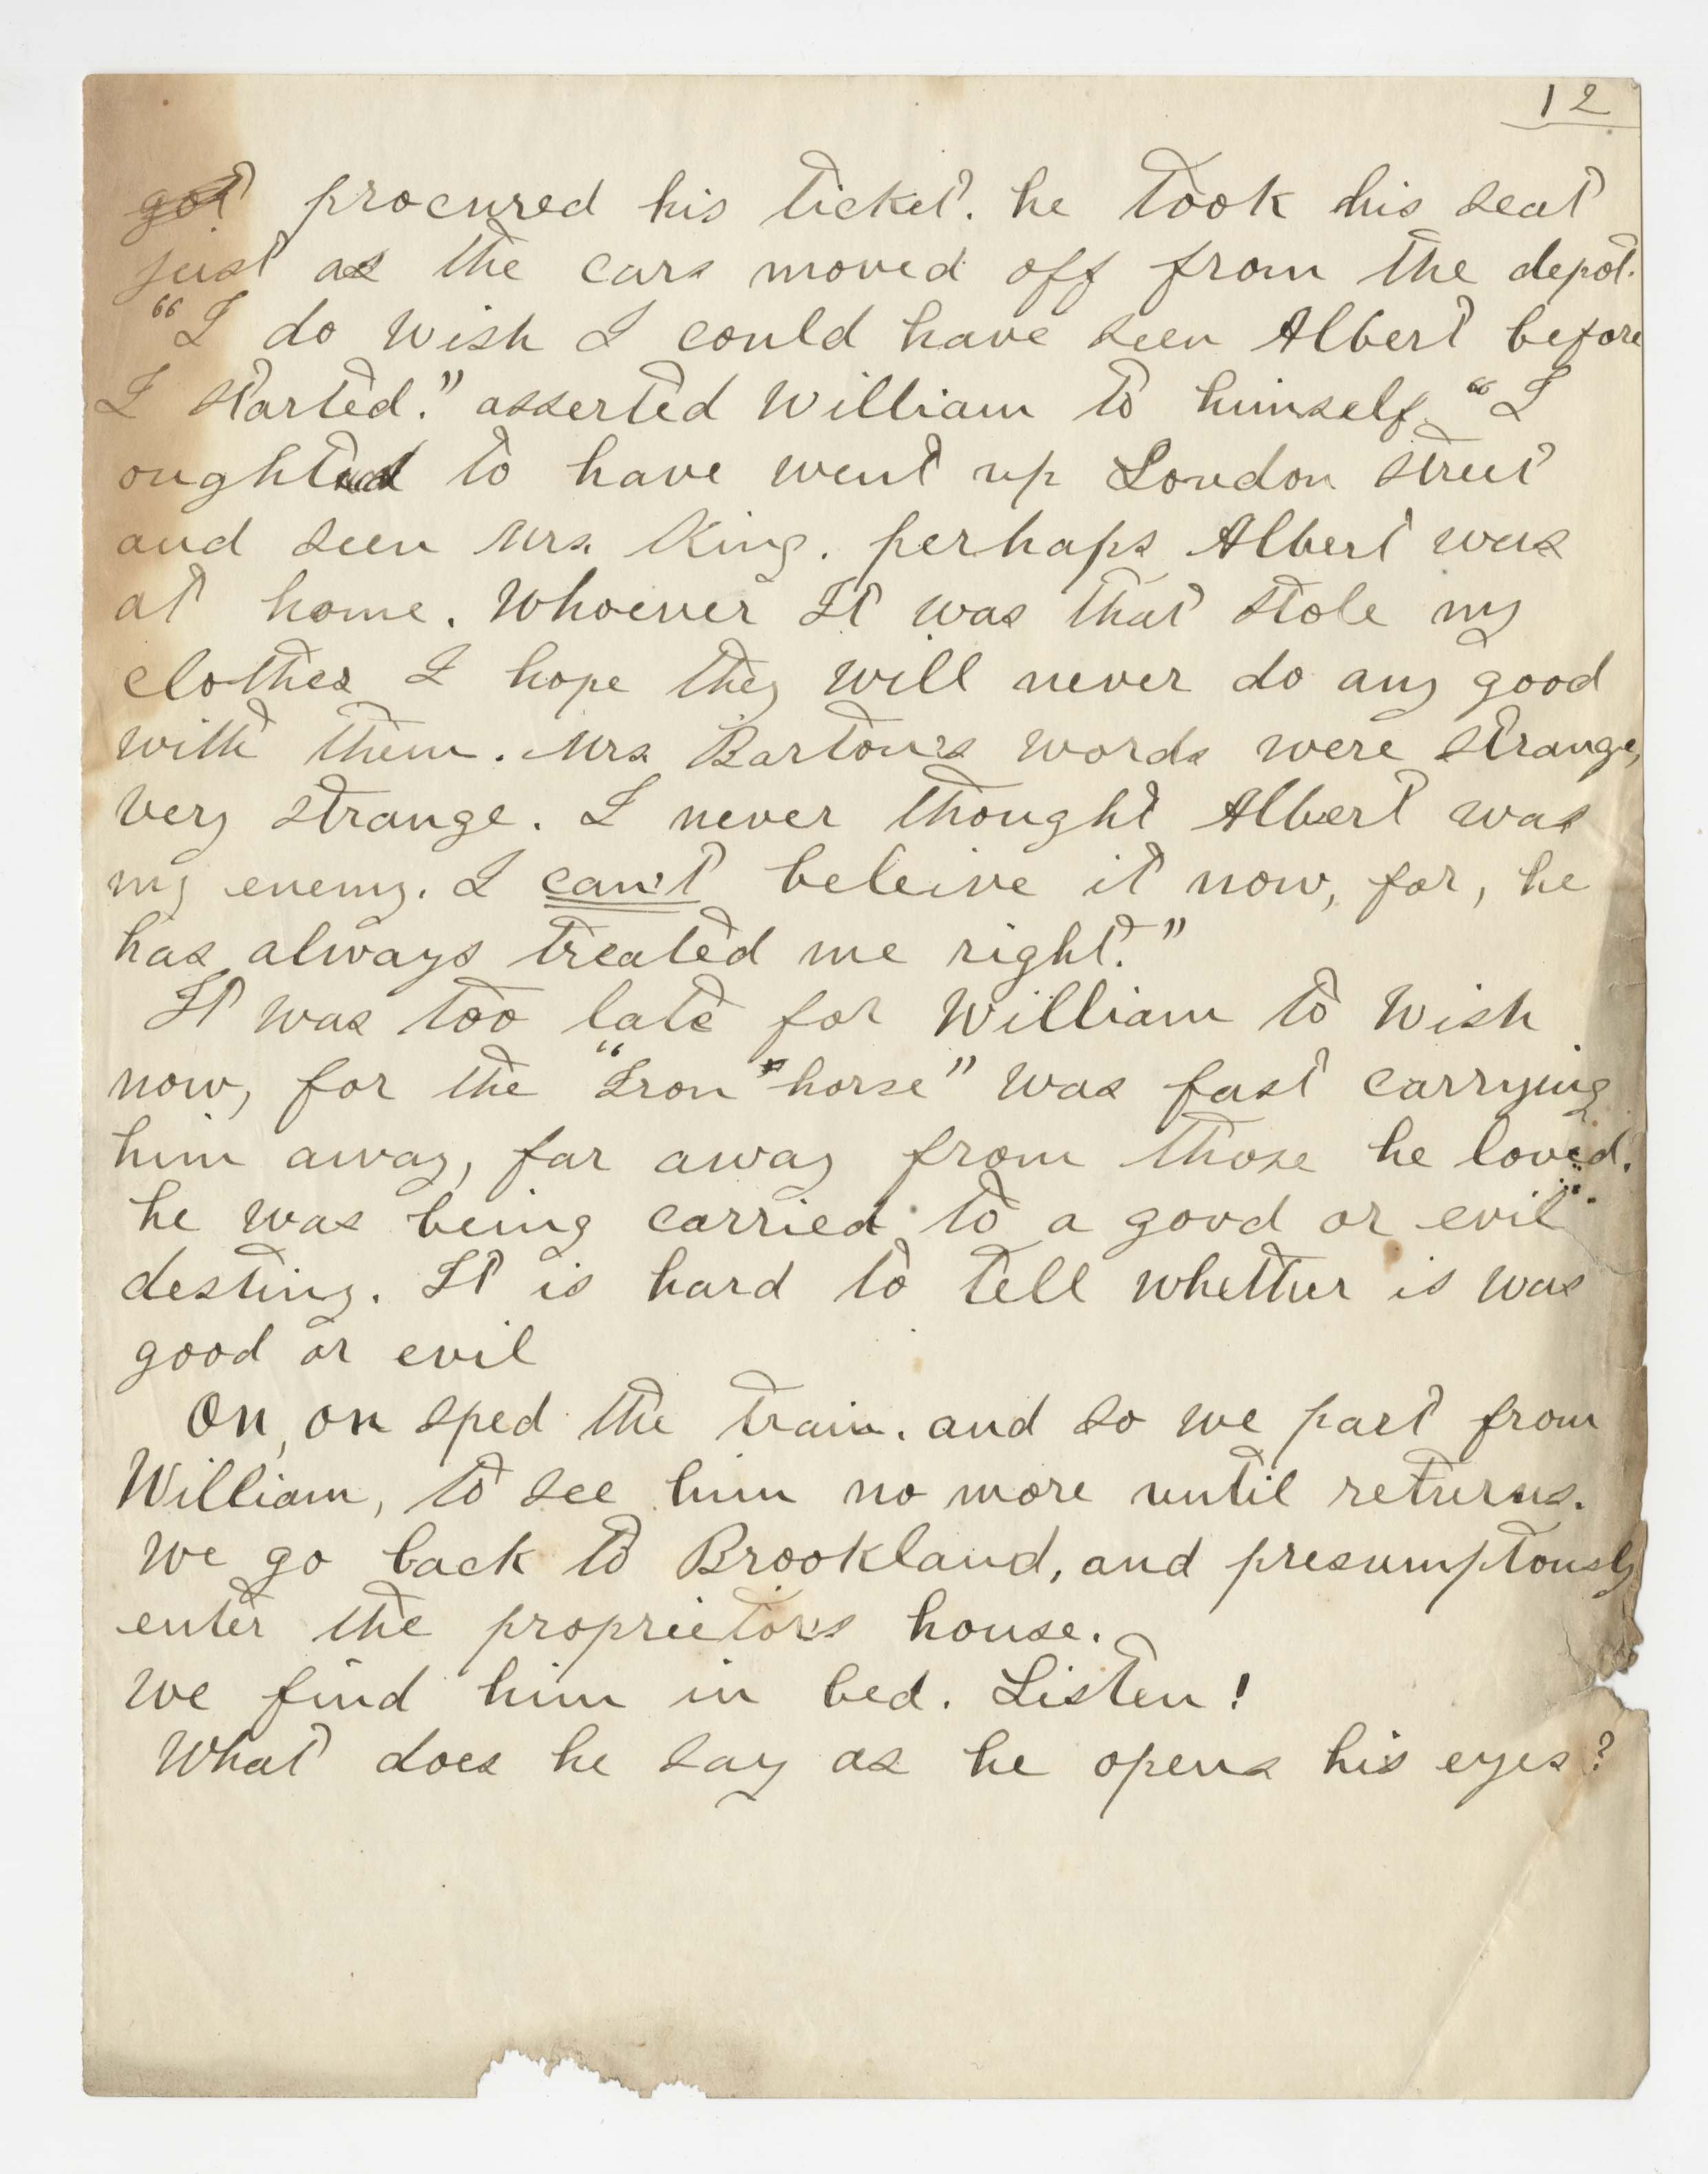 12
got procured his ticket. he took his seat
just as the cars moved off from the depot.
"I do wish I could have seen Albert before
I started." asserted William to himself. "I
oughted to have went up London street
and seen Mrs. King. perhaps Albert was
at home. Whoever It was that stole my
clothes I hope they will never do any good
with them. Mrs Barton's words were strange,
very strange. I never thought Albert was
my enemy. I can't beleive it now, for, he
has always treated me right."
It was too late for William to wish
now, for the "Iron horse" was fast carrying
him away, far away from those he loved.
he was being carried to a good or evil
destiny. It is hard to tell whether is was
good or evil
On, on sped the train. and so we part from
William, to see him no more until returns.
We go back to Brookland, and presumptously
enter the proprietor's house.
We find him in bed. Listen!
What does he say as he opens his eyes?